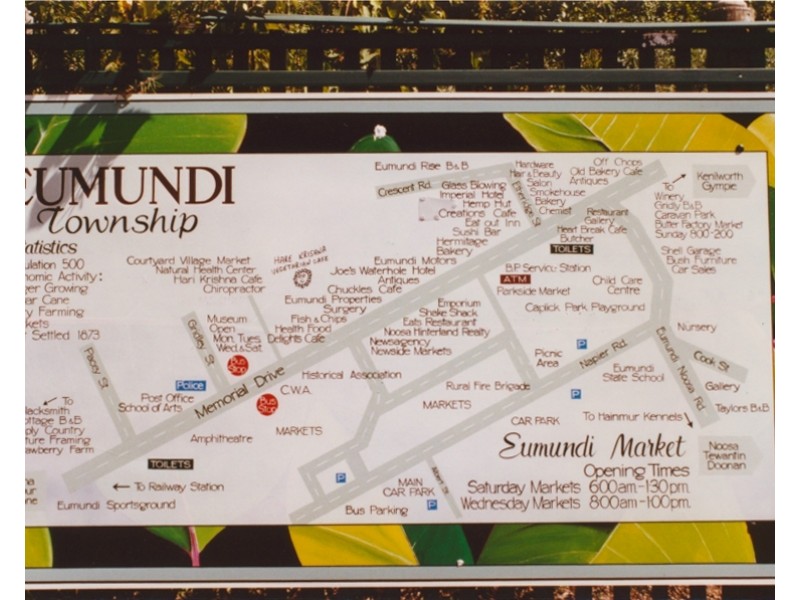 EUMUNDI
Township
tatistics
ulation 500
nomic Activity:
er Growing
ar Cane
y Farming
kets
Settled 1873
Courtyard Village Market
Natural Health Center
Hari Krishna Cafe
Chiropractor
HARE KRISHNA
VEGETARIAN CAFE
Eumundi Rise B&B
Crescent Rd.
Glass Blowing
Imperial Hotel
Hemp Hut
Creations Cafe
Eat out Inn
Sushi Bar
Hermitage
Bakery
Eumundi Motors
Joe's Waterhole Hotel
Antiques
Chuckles Cafe
Eumundi Properties
Surgery
Fish & Chips
Health Food
Delights Cafe
Hardware
Hair & Beauty
Salon
Smokehouse
Bakery
Chemist
Etheridge St
Off Chops
Old Bakery Cafe
Antiques
Restaurant
Gallery
Heart Break Cafe
Butcher
TOILETS
To
Winery
Gridly B&B
Caravan Park
Butter Factory Market
Sunday 8:00-2:00
Kenilworth
Gympie
Shell Garage
Bush Furniture
Car Sales
B.P. Service Station
ATM
Parkside Market
Child Care
Centre
Caplick Park Playground
Emporium
Shake Shack
Eats Restaurant
Noosa Hinterland Realty
Newsagency
Newside Markets
Museum
Open
Mon. Tues
Wed.& Sat.
Bus
Stop
Pacey St
Grailey St
Police
Post Office
School of Arts
Memorial Drive
Bus
Stop
C.W.A.
Historical Association
Picnic
Area
P
Napier Rd.
P
Nursery
Eumundi Noosa Rd.
Cook St
Eumundi
State School
Gallery
Taylors B&B
Rural Fire Brigade
MARKETS
CAR PARK
To Hainmur Kennels
To
lacksmith
ottage B&B
ply Country
ture Framing
awberry Farm
Amphitheatre
MARKETS
TOILETS
To Railway Station
Eumundi Sportsground
P
MAIN
CAR PARK
P
Bus Parking
Main St
Eumundi Market
Opening Times
Saturday Markets 6:00am-1:30pm.
Wednesday Markets 8:00am-1:00pm.
Noosa
Tewantin
Doonan